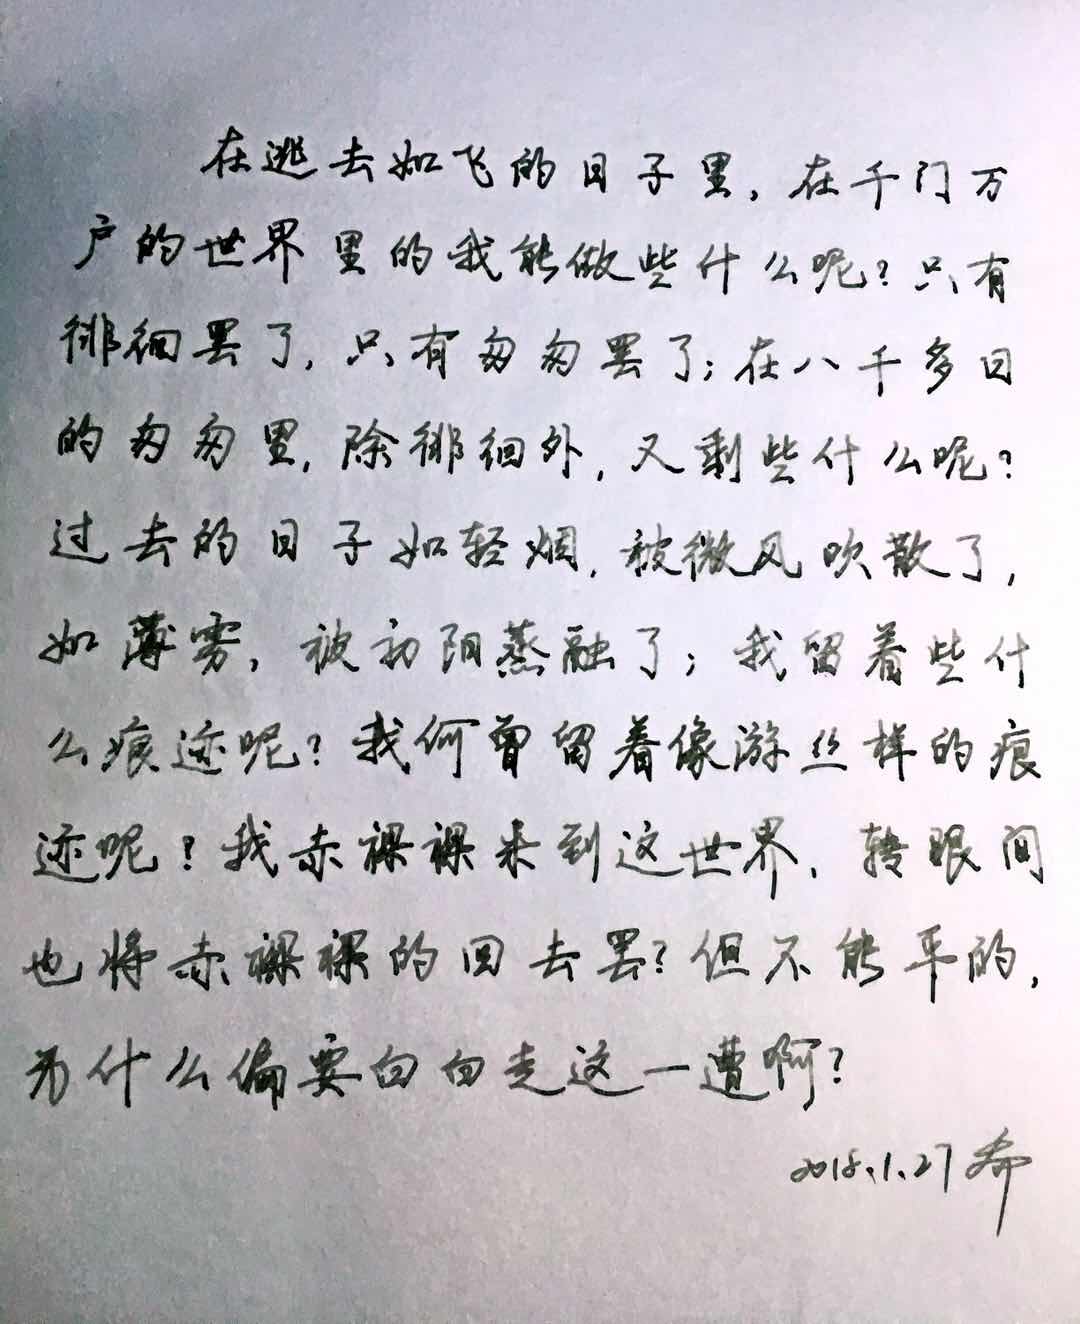 在逃去如飞的日子里，在千门万
户的世界里的我能做些什么呢？只有
徘徊罢了，只有匆匆罢了；在八千多日
的匆匆里，除徘徊外，又剩些什么呢？
过去的日子如轻烟，被微风吹散了，
如薄雾，被初阳蒸融了；我留着些什
么痕迹呢？我何曾留着像游丝样的痕
迹呢？我赤裸裸来到这世界，转眼间
也将赤裸裸的回去罢？但不能平的，
为什么偏要白白走这一遭啊？
2018.1.27 希